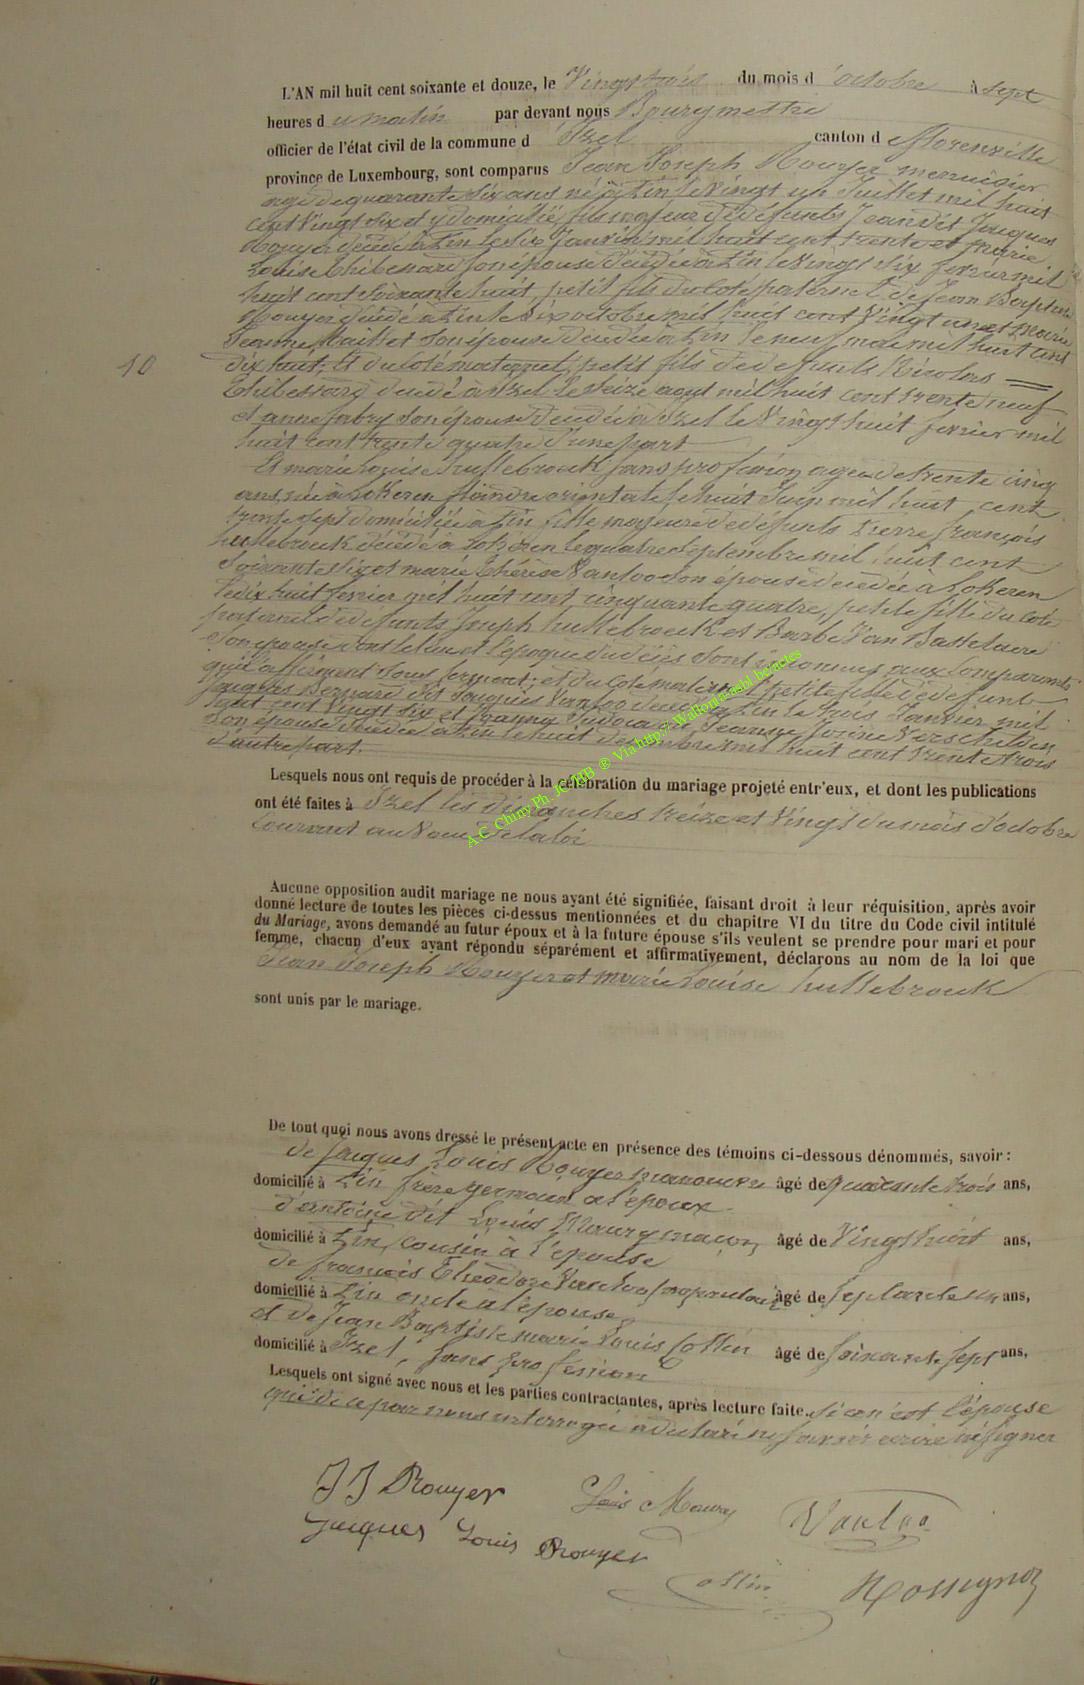 L'AN mil huit cent soixante et douze, le Vingt trois du mois d'octobre à Sept
heures du matin par devant nous Bourgmestre
officier de l'état civil de la commune d'Izel canton de florenville
province de Luxembourg, sont comparus Jean Joseph Rouyer menuisier
agé de quarante six ans né à Pin le Vingt un Juillet mil huit
cent vingt six et y domicilié, fils majeur de défunts Jean dit Jacques
Rouyer décédé à Pin le six Janvier mil huit cent trente et Marie
Louise Thibessard son épouse décédée à Pin le vingt six fevrier mil
huit cent soixante huit, petit fils du coté paternel de Jean Baptiste
Rouyer décédé à Pin le octobre mil huit cent Vingt un et Marie
Jeanne son épouse décédée à Pin le neuf mai mil huit cent
10
dix huit, Et du coté maternel, petit fils de defunts Nicolas
Thibessard decédé à Izel le seize aout mil huit cent trente neuf
et anne fabry son épouse decédée à Izel le Vingt huit fevrier mil
huit cent trente quatre d'une part
Et marie Louise hullebroeck sans profession agée de trente cinq
ans, née à Lokeren flandre orientale, le huit mil huit cent
trente sept domiciliée à Pin fille majeure de défunts Pierre françois
hullebroeck décédé à Lokeren le quatre septembre mil huit cent
soixante six et marie thérèse Vanloo son épouse decédée à Lokeren
le dix huit fevrier mil huit cent cinquante quatre, petite fille du coté
paternel de défunts Joseph hullebroeck et Barbe Van Basselaere
son épouse dont le lieu et l'époque du décès sont inconnus aux comparants
qui l'affirment sous serment, et du coté maternel petite fille de defunts
Jacques Bernard dit Jacques Vanloo decédé à Pin le trois Janvier mil
huit cent Vingt six et Jeanne Verschelden
son épouse decédée à Pin le huit decembre mil huit cent trente trois
d'autre part.
Lesquels nous ont requis de procéder à la célébration du mariage projeté entr'eux, et dont les publications
ont été faites à Izel les dimanches treize et Vingt du mois d'octobre
courant au voeu de la loi
A.C. Chiny Ph. JC HB ® Via http:// Wallonia-asbl.be/actes
Aucune opposition audit mariage ne nous ayant été signifiée, faisant droit à leur réquisition, après avoir
donné lecture de toutes les pièces ci-dessus mentionnées et du chapitre VI du titre du Code civil intitulé
du Mariage, avons demandé au futur époux et à la future épouse s'ils veulent se prendre pour mari et pour
femme, chacun d'eux ayant répondu séparément et affirmativement, déclarons au nom de la loi que
Jean Joseph Rouyer et marie Louise hullebroeck
sont unis par le mariage.
De tout quoi nous avons dressé le présent acte en présence des témoins ci-dessous dénommés, savoir :
de Jacques Louis Rouyer manoeuvre âgé de quarante trois ans,
domicilié à Pin frère germain à l'époux
d'antoine dit Louis Maury maçon âgé de Vingt huit ans,
domicilié à Pin, cousin à l'épouse
de françois Théodore Vanloo âgé de septante un ans,
domicilié à Pin oncle à l'épouse
et de Jean Baptiste marie Louis Collin âgé de soixante sept ans,
domicilié à Izel, sans profession
Lesquels ont signé avec nous et les parties contractantes, après lecture faite. si ce n'est l'épouse
qui de ce par nous interrogée a déclaré ne savoir écrire ni signer
JJ Rouyer Louis Maury Vanloo
Jacques Louis Rouyer
Collin Rossignol